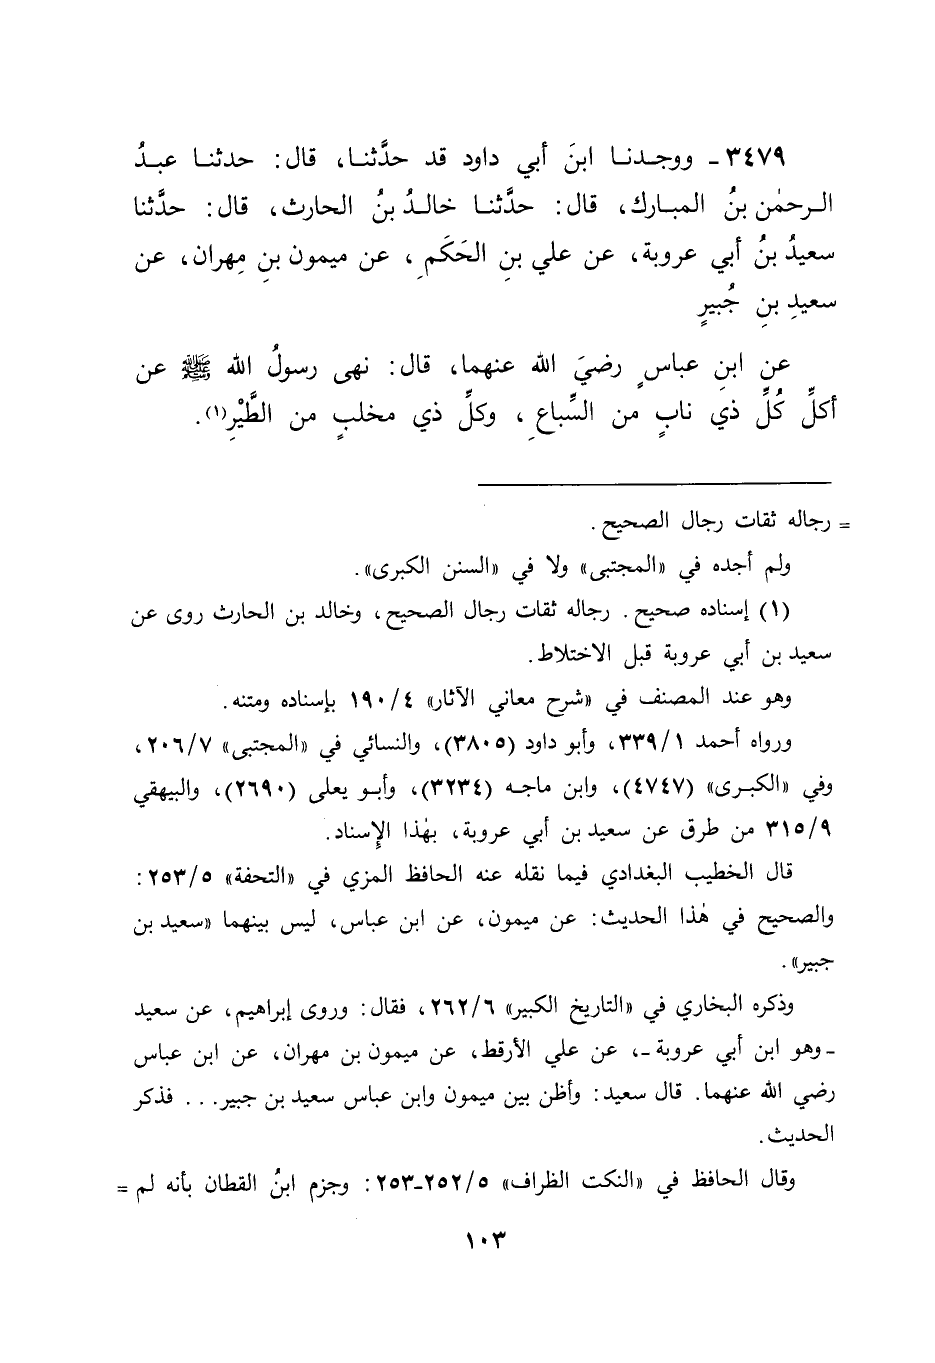 ٣٤٧٩ - ووجدنا ابنَ أبي داود قد حدَّثنا، قال: حدثنا عبدُ
الرحمٰن بنُ المبارك، قال: حدَّثنا خالدُ بنُ الحارث، قال: حدَّثنا
سعيدُ بنُ أبي عروبة، عن علي بنِ الحَكَمِ، عن ميمون بنِ مِهران، عن
سعيدِ بنِ جُبيرٍ
عن ابنِ عباسٍ رضيَ الله عنهما، قال: نهى رسولُ الله ﷺ عن
أكلِّ كُلِّ ذي نابٍ من السِّباعِ، وكلِّ ذي مخلبٍ من الطَّيْرِ(١).
= رجاله ثقات رجال الصحيح.
ولم أجده في «المجتبى» ولا في «السنن الكبرى».
(١) إسناده صحيح. رجاله ثقات رجال الصحيح، وخالد بن الحارث روى عن
سعيد بن أبي عروبة قبل الاختلاط.
وهو عند المصنف في «شرح معاني الآثار» ١٩٠/٤ بإسناده ومتنه.
ورواه أحمد ٣٣٩/١، وأبو داود (٣٨٠٥)، والنسائي في «المجتبى» ٢٠٦/٧،
وفي «الكبرى» (٤٧٤٧)، وابن ماجه (٣٢٣٤)، وأبو يعلى (٢٦٩٠)، والبيهقي
٣١٥/٩ من طرق عن سعيد بن أبي عروبة، بهٰذا الإِسناد.
قال الخطيب البغدادي فيما نقله عنه الحافظ المزي في «التحفة» ٢٥٣/٥:
والصحيح في هٰذا الحديث: عن ميمون، عن ابن عباس، ليس بينهما «سعيد بن
جبير».
وذكره البخاري في «التاريخ الكبير» ٢٦٢/٦، فقال: وروى إبراهيم، عن سعيد
- وهو ابن أبي عروبة -، عن علي الأرقط، عن ميمون بن مهران، عن ابن عباس
رضي الله عنهما. قال سعيد: وأظن بين ميمون وابن عباس سعيد بن جبير... فذكر
الحديث.
وقال الحافظ في «النكت الظراف» ٢٥٢/٥-٢٥٣: وجزم ابنُ القطان بأنه لم =
١٠٣